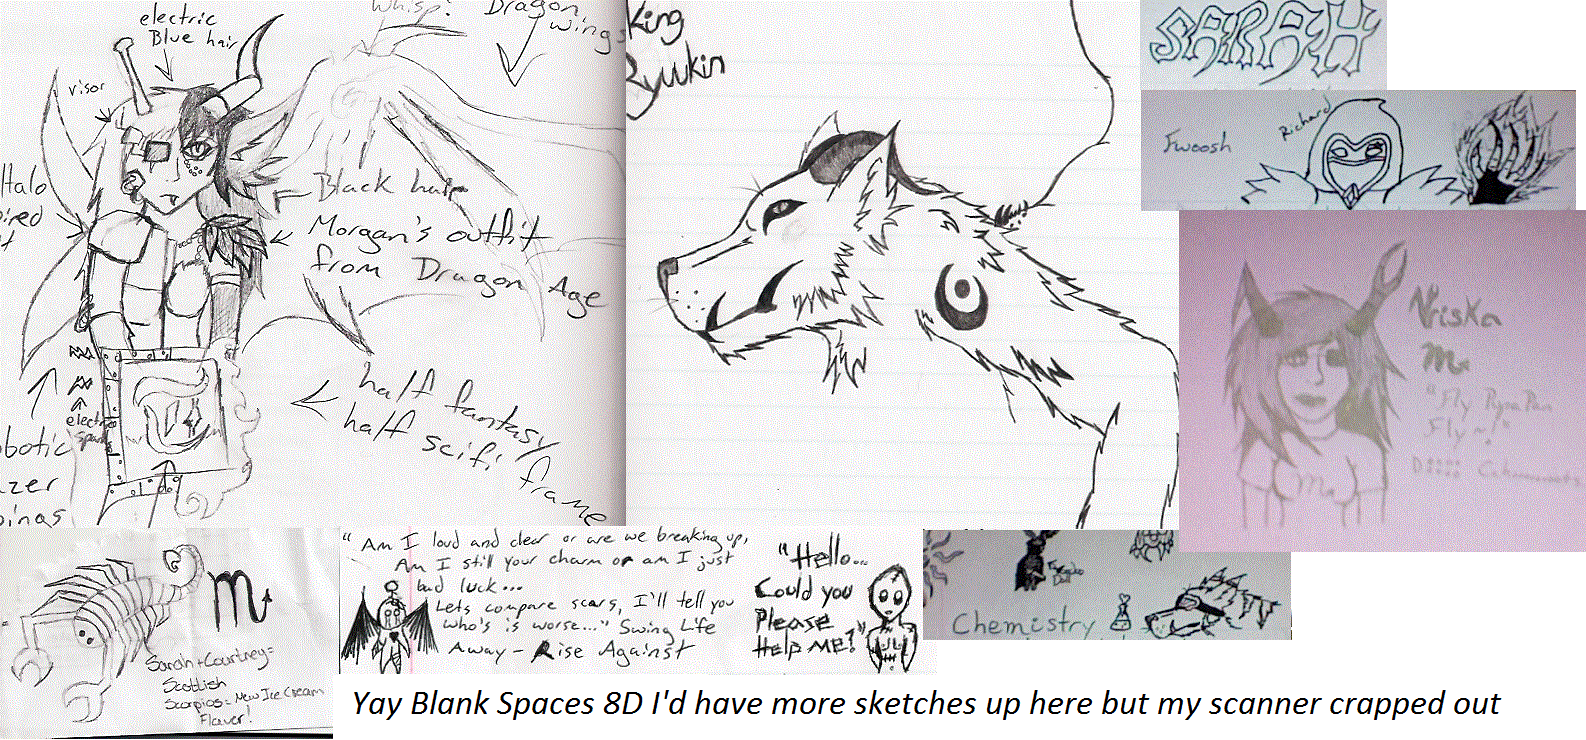 electric
Blue hair
whisp?
Dragon
wings
visor
Halo
Black hair
Morgan's outfit
from Dragon Age
half fantasy
half scifi
frame
King
Ryuukin
SARAH
Fwoosh
Richard
Vriska
"Fly
Fly
Sarah + Courtney =
Scottish
Scorpios = New Ice Cream
Flavor!
"Am I loud and clear or are we breaking up,
Am I still your charm or am I just
bad luck...
Lets compare scars, I'll tell you
who's is worse..." Swing Life
Away - Rise Against
"Hello...
Could you
Please
Help ME!"
Chemistry
Yay Blank Spaces 8D I'd have more sketches up here but my scanner crapped out